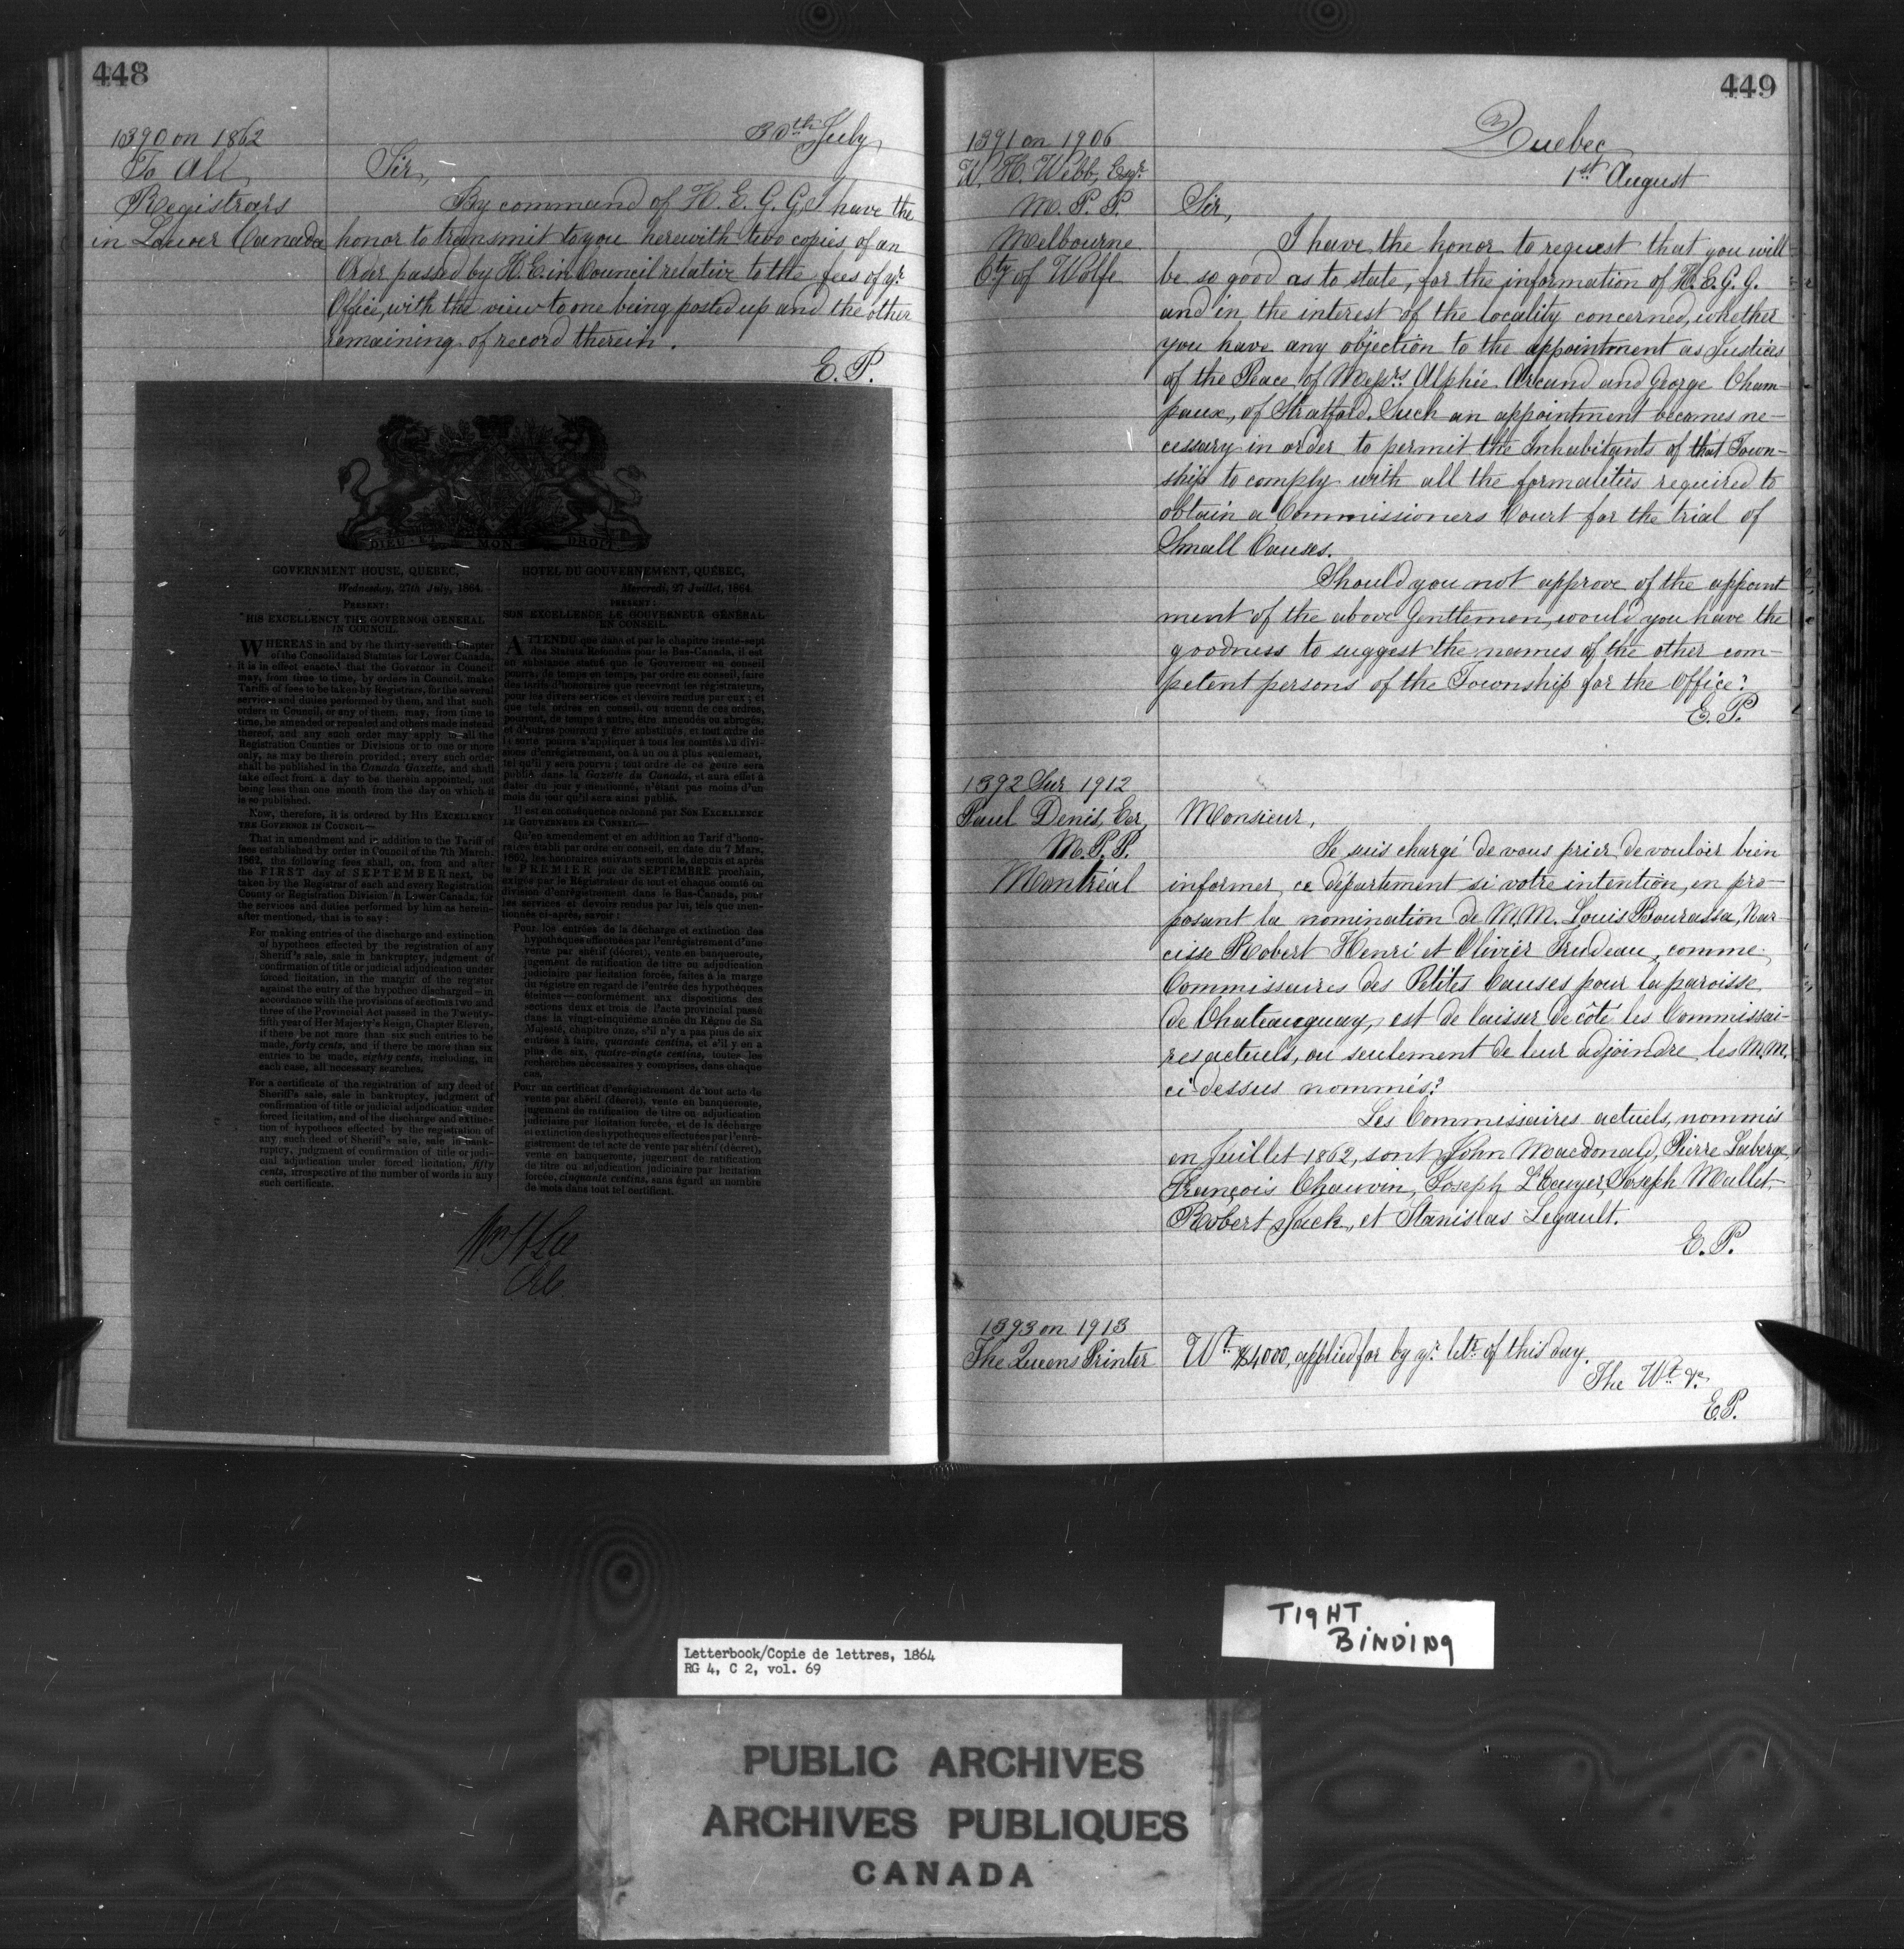 448
1390 on 1862
To All
Registrars
in Lower Canada
30th July
Sir,
By command of H. E. G. G, I have the
honor to transmit to you herewith two copies of an
Order passed by H. E. in Council relative to the fees of yr
Office, with the view to one being posted up and the other
remaining of record therein.
E. P.
DIEU ET MON DROIT
GOVERNMENT HOUSE, QUEBEC,
Wednesday, 27th July, 1864.
PRESENT:
HIS EXCELLENCY THE GOVERNOR GENERAL
IN COUNCIL.
WHEREAS in and by the thirty-seventh Chapter
of the Consolidated Statutes for Lower Canada,
it is in effect enacted that the Governor in Council
may, from time to time, by orders in Council, make
Tariffs of fees to be taken by Registrars, for the several
services and duties performed by them, and that such
orders in Council, or any of them, may, from time to
time, be amended or repealed and others made instead
thereof, and any such order may apply to all the
Registration Counties or Divisions or to one or more
only, as may be therein provided; every such order
shall be published in the Canada Gazette, and shall
take effect from a day to be therein appointed, not
being less than one month from the day on which it
is so published.
Now, therefore, it is ordered by HIS EXCELLENCY
THE GOVERNOR IN COUNCIL—
That in amendment and in addition to the Tariff of
fees established by order in Council of the 7th March,
1862, the following fees shall, on, from and after
the FIRST day of SEPTEMBER next, be
taken by the Registrar of each and every Registration
County or Registration Division in Lower Canada, for
the services and duties performed by him as herein-
after mentioned, that is to say:
For making entries of the discharge and extinction
of hypothecs effected by the registration of any
Sheriff's sale, sale in bankruptcy, judgment of
confirmation of title or judicial adjudication under
forced licitation, in the margin of the register
against the entry of the hypothec discharged—in
accordance with the provisions of sections two and
three of the Provincial Act passed in the Twenty-
fifth year of Her Majesty's Reign, Chapter Eleven,
if there be not more than six such entries to be
made, forty cents, and if there be more than six
entries to be made, eighty cents, including, in
each case, all necessary searches.
For a certificate of the registration of any deed of
Sheriff's sale, sale in bankruptcy, judgment of
confirmation of title or judicial adjudication under
forced licitation, and of the discharge and extinc-
tion of hypothecs effected by the registration of
any such deed of Sheriff's sale, sale in bank-
ruptcy, judgment of confirmation of title or judi-
cial adjudication under forced licitation, fifty
cents, irrespective of the number of words in any
such certificate.
HOTEL DU GOUVERNEMENT, QUÉBEC,
Mercredi, 27 Juillet, 1864.
PRESENT:
SON EXCELLENCE LE GOUVERNEUR GÉNÉRAL
EN CONSEIL.
ATTENDU que dans et par le chapitre trente-sept
des Statuts Refondus pour le Bas-Canada, il est
en substance statué que le Gouverneur en conseil
pourra, de temps en temps, par ordre en conseil, faire
des tarifs d'honoraires que recevront les régistrateurs,
pour les divers services et devoirs rendus par eux; et
que tels ordres en conseil, ou aucun de ces ordres,
pourront, de temps à autre, être amendés ou abrogés,
et d'autres pourront y être substitués, et tout ordre de
la sorte pourra s'appliquer à tous les comtés ou divi-
sions d'enregistrement, ou à un ou à plus seulement,
tel qu'il y sera pourvu; tout ordre de ce genre sera
publié dans la Gazette du Canada, et aura effet à
dater du jour y mentionné, n'étant pas moins d'un
mois du jour qu'il sera ainsi publié.
Il est en conséquence ordonné par SON EXCELLENCE
LE GOUVERNEUR EN CONSEIL—
Qu'en amendement et en addition au Tarif d'hono-
raires établi par ordre en conseil, en date du 7 Mars,
1862, les honoraires suivants seront le, depuis et après
le PREMIER jour de SEPTEMBRE prochain,
exigés par le Régistrateur de tout et chaque comté ou
division d'enregistrement dans le Bas-Canada, pour
les services et devoirs rendus par lui, tels que men-
tionnés ci-après, savoir:
Pour les entrées de la décharge et extinction des
hypothèques effectuées par l'enrégistrement d'une
vente par shérif (décret), vente en banqueroute,
jugement de ratification de titre ou adjudication
judiciaire par licitation forcée, faites à la marge
du régistre en regard de l'entrée des hypothèques
éteintes—conformément aux dispositions des
sections deux et trois de l'acte provincial passé
dans la vingt-cinquième année du Règne de Sa
Majesté, chapitre onze, s'il n'y a pas plus de six
entrées à faire, quarante centins, et s'il y en a
plus de six, quatre-vingts centins, toutes les
recherches nécessaires y comprises, dans chaque
cas.
Pour un certificat d'enrégistrement de tout acte de
vente par shérif (décret), vente en banqueroute,
jugement de ratification de titre ou adjudication
judiciaire par licitation forcée, et de la décharge
et extinction des hypothèques effectuées par l'enré-
gistrement de tel acte de vente par shérif (décret),
vente en banqueroute, jugement de ratification
de titre ou adjudication judiciaire par licitation
forcée, cinquante centins, sans égard au nombre
de mots dans tout tel certificat.
Wm H Lee
449
Quebec
1st August
1391 on 1906
W. H. Webb, Esqr
M. P. P.
Melbourne
Cty of Wolfe
Sir,
I have the honor to request that you will
be so good as to state, for the information of H. E. G. G.
and in the interest of the locality concerned, whether
you have any objection to the appointment as Justices
of the Peace of Messrs Alphée Arcand and George Cham-
paux, of Stratford. Such an appointment becomes ne-
cessary in order to permit the Inhabitants of that Town-
ship to comply with all the formalities required to
obtain a Commissioners Court for the trial of
Small Causes.
Should you not approve of the appoint
ment of the above Gentlemen, would you have the
goodness to suggest the names of the other com-
petent persons of the Township for the Office?
E. P.
1392 Sur 1912
Paul Denis, Ecr,
M. P. P.
Montréal
Monsieur,
Je suis chargé de vous prier de vouloir bien
informer ce département si votre intention, en pro-
posant la nomination de M.M. Louis Bourassa, Nar-
cisse Robert Henri et Olivier Trudeau, comme
Commissaires des Petites Causes pour la paroisse
de Chateauguay, est de laisser de côté les Commissai-
res actuels, ou seulement de leur adjoindre les M.M.
ci-dessus nommés?
Les Commissaires actuels, nommés
en Juillet 1862, sont John Macdonald, Pierre Laberge,
François Chauvin, Joseph L'Ecuyer, Joseph Mallet
Robert Jack, et Stanislas Legault.
E. P.
1393 on 1913
The Queens Printer
Wt $4000, applied for by yr lettr of this day.
The Wt &c
E.P.
TIGHT
BINDING
Letterbook/Copie de lettres, 1864
RG 4, C 2, vol. 69
PUBLIC ARCHIVES
ARCHIVES PUBLIQUES
CANADA